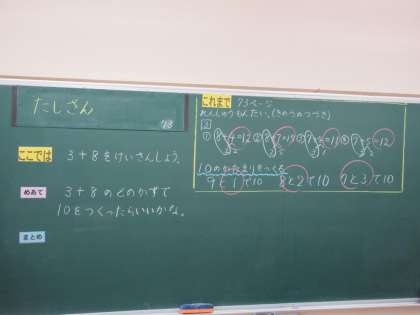 たしざん
73
ここでは 3+8をけいさんしよう。
めあて 3+8のどのかずで
10をつくったらいいかな。
まとめ
これまで 73ページ
れんしゅうもんだい。(きのうのつづき)
3
10のかたまりをつくる
9と1で10 8と2で10 7と3で10